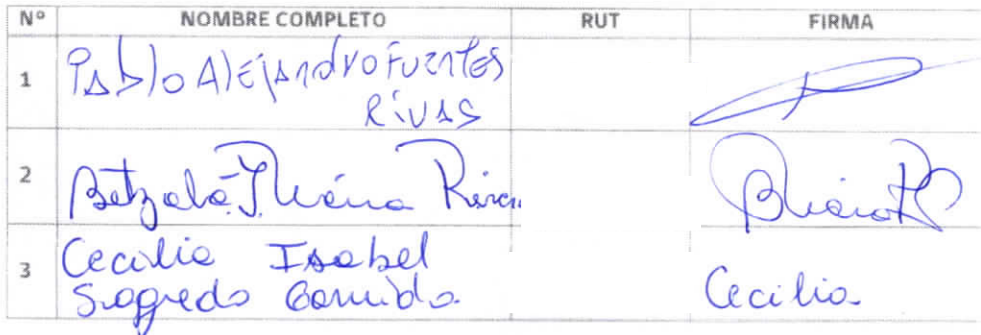 Nº NOMBRE COMPLETO RUT FIRMA
1 Pablo Alejandro Fuentes
Rivas
2 Betzabé
3 Cecilia Isabel
Sagredo Garrido Cecilia